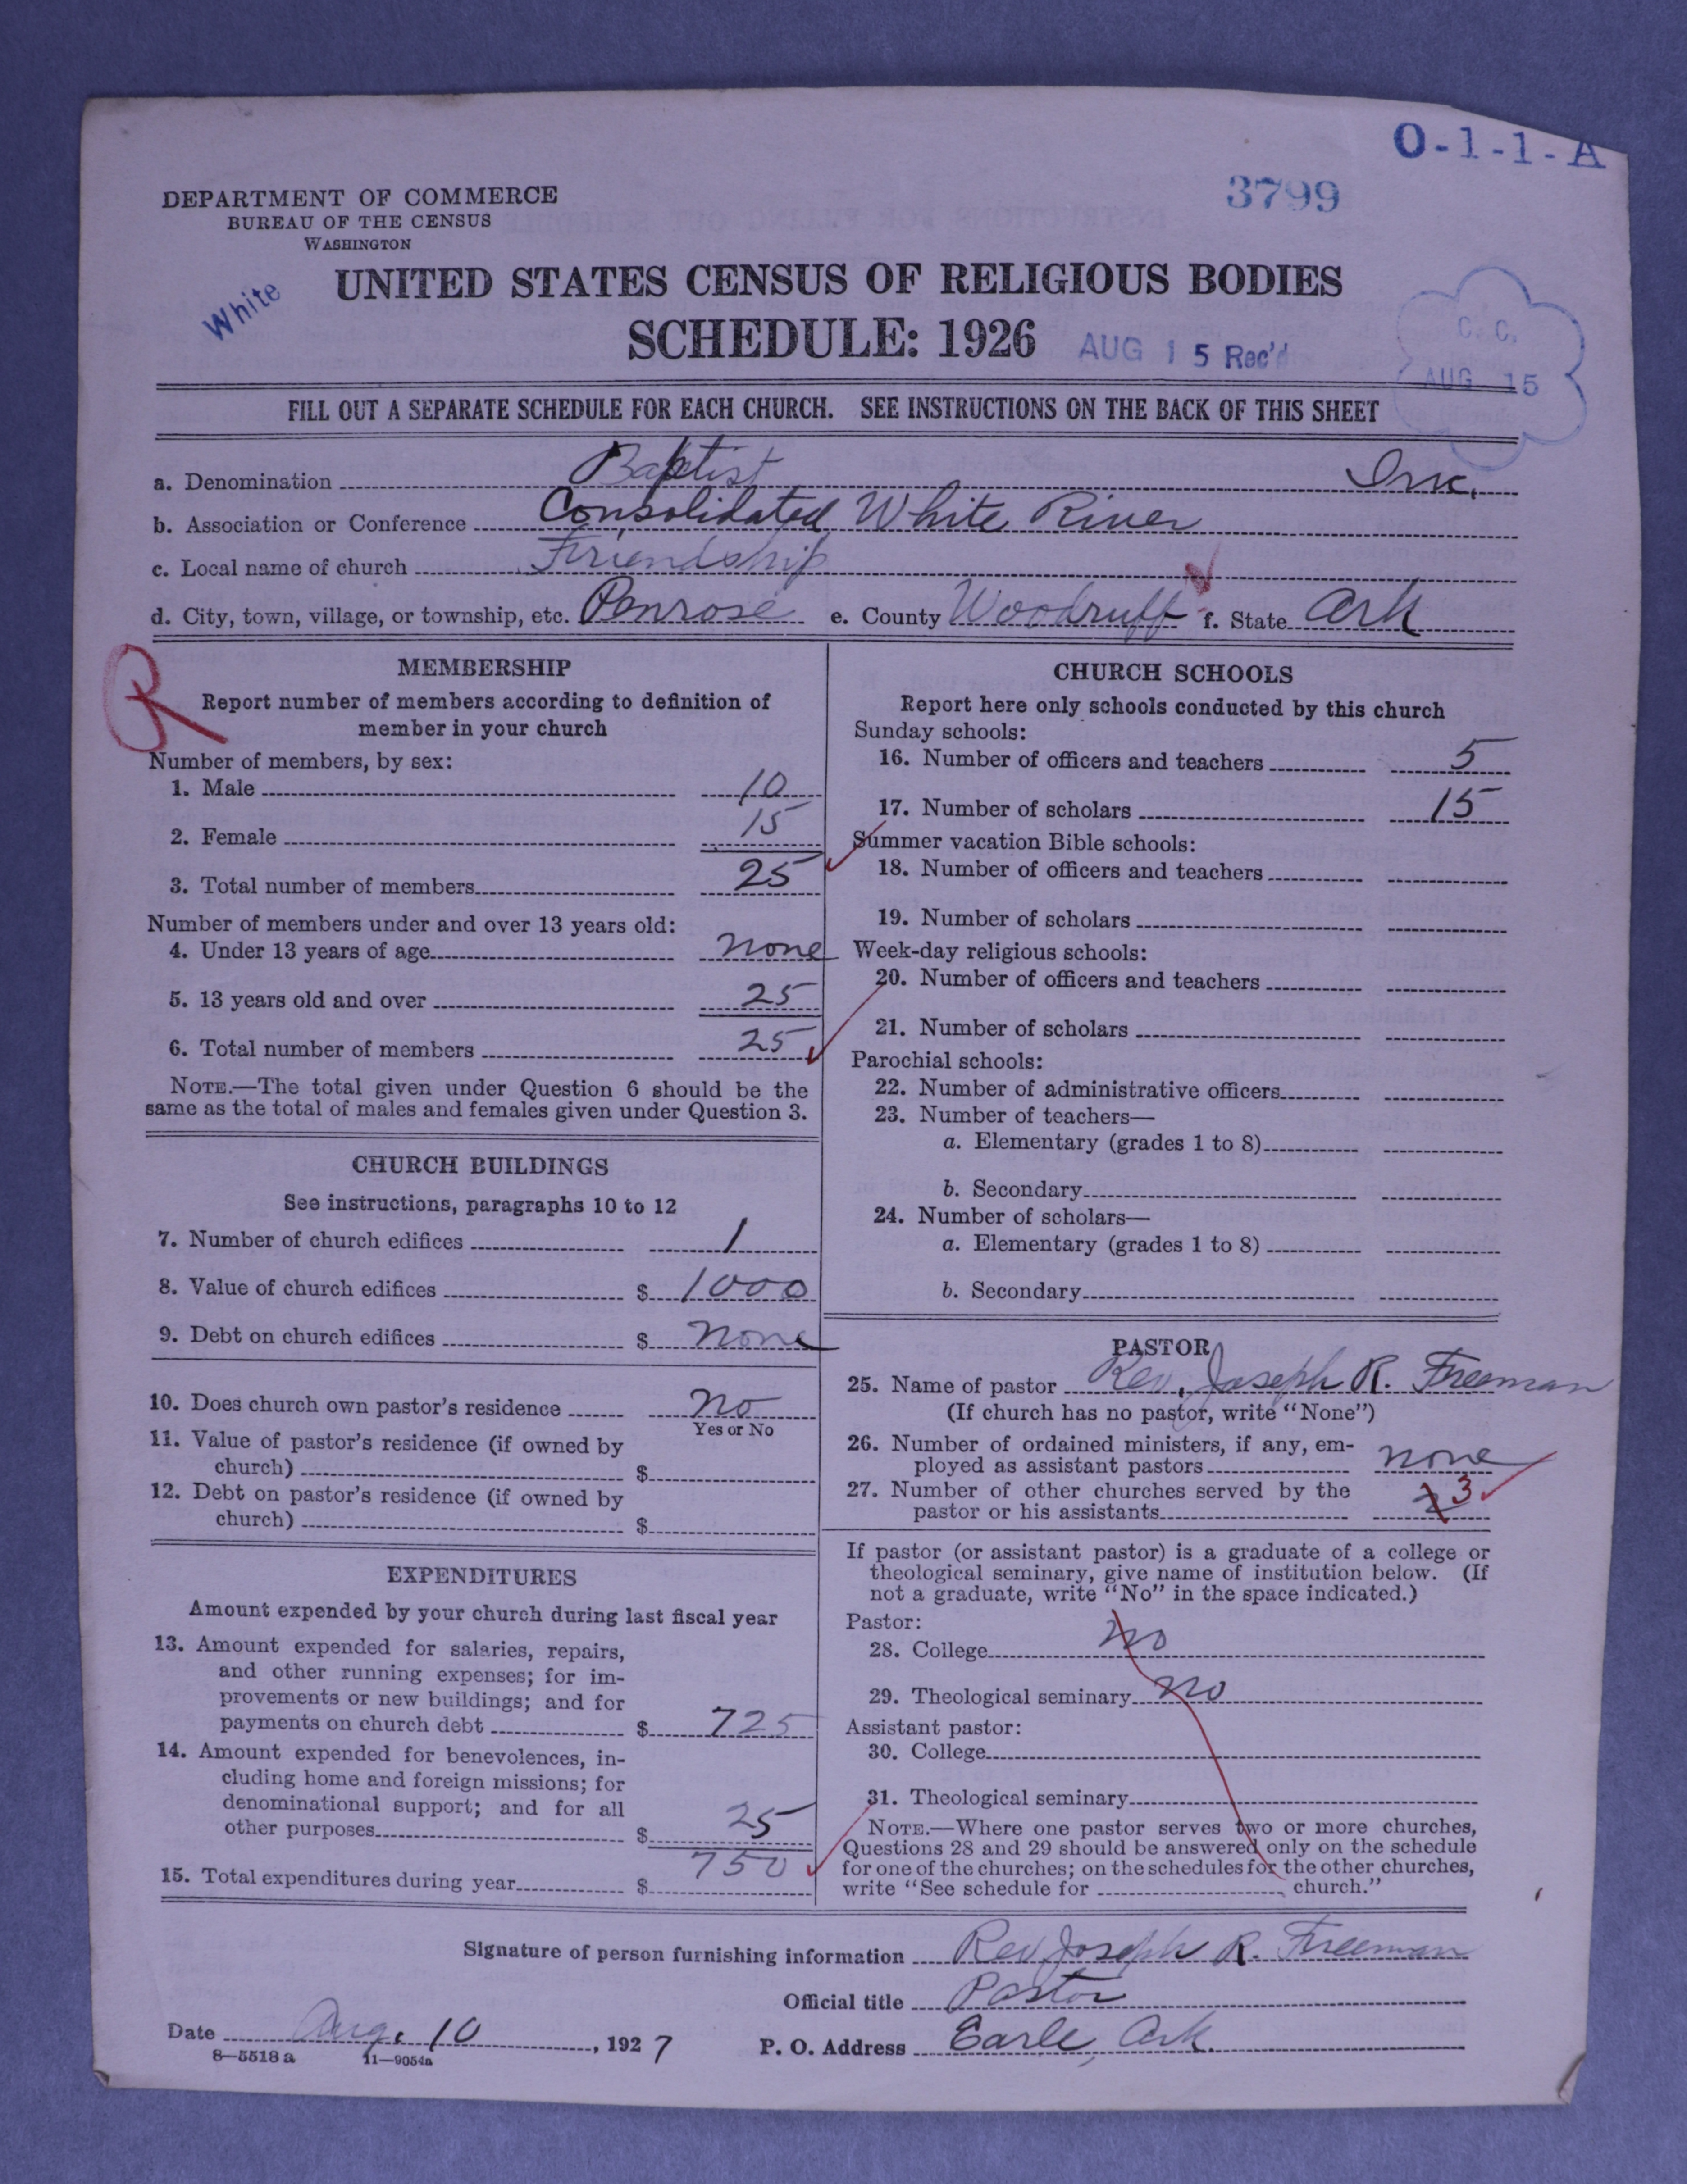 O-1-1-A
3799
DEPARTMENT OF COMMERCE
BUREAU OF THE CENSUS
WASHINGTON
White
UNITED STATES CENSUS OF RELIGIOUS BODIES
SCHEDULE: 1926
AUG 15 Rec'd
C. C.
AUG 15
FILL OUT A SEPARATE SCHEDULE FOR EACH CHURCH. SEE INSTRUCTIONS ON THE BACK OF THIS SHEET
a. Denomination Baptist
b. Association or Conference Consolidated White River
c. Local name of church Friendship
d. City, town, village, or township, etc. Penrose e. County Woodruff f. State Ark
R
MEMBERSHIP
Report number of members according to definition of
member in your church
Number of members, by sex:
1. Male 10
2. Female 15
3. Total number of members 25
Number of members under and over 13 years old:
4. Under 13 years of age none
5. 13 years old and over 25
6. Total number of members 25
NOTE.—The total given under Question 6 should be the
same as the total of males and females given under Question 3.
CHURCH BUILDINGS
See instructions, paragraphs 10 to 12
7. Number of church edifices 1
8. Value of church edifices $ 1000
9. Debt on church edifices $ none
10. Does church own pastor's residence no
Yes or No
11. Value of pastor's residence (if owned by
church) $
12. Debt on pastor's residence (if owned by
church) $
EXPENDITURES
Amount expended by your church during last fiscal year
13. Amount expended for salaries, repairs,
and other running expenses; for im-
provements or new buildings; and for
payments on church debt $ 725
14. Amount expended for benevolences, in-
cluding home and foreign missions; for
denominational support; and for all
other purposes $ 25
15. Total expenditures during year $ 750
CHURCH SCHOOLS
Report here only schools conducted by this church
Sunday schools:
16. Number of officers and teachers 5
17. Number of scholars 15
Summer vacation Bible schools:
18. Number of officers and teachers
19. Number of scholars
Week-day religious schools:
20. Number of officers and teachers
21. Number of scholars
Parochial schools:
22. Number of administrative officers
23. Number of teachers—
a. Elementary (grades 1 to 8)
b. Secondary
24. Number of scholars—
a. Elementary (grades 1 to 8)
b. Secondary
PASTOR
25. Name of pastor Rev. Joseph R. Freeman
(If church has no pastor, write "None")
26. Number of ordained ministers, if any, em-
ployed as assistant pastors none
27. Number of other churches served by the
pastor or his assistants 3
If pastor (or assistant pastor) is a graduate of a college or
theological seminary, give name of institution below. (If
not a graduate, write "No" in the space indicated.)
Pastor:
28. College no
29. Theological seminary no
Assistant pastor:
30. College
31. Theological seminary
NOTE.—Where one pastor serves two or more churches,
Questions 28 and 29 should be answered only on the schedule
for one of the churches; on the schedules for the other churches,
write "See schedule for church."
Signature of person furnishing information Rev Joseph R. Freeman
Official title Pastor
Date Aug. 10, 1927 P. O. Address Earle, Ark.
8—5518 a 11—9054a